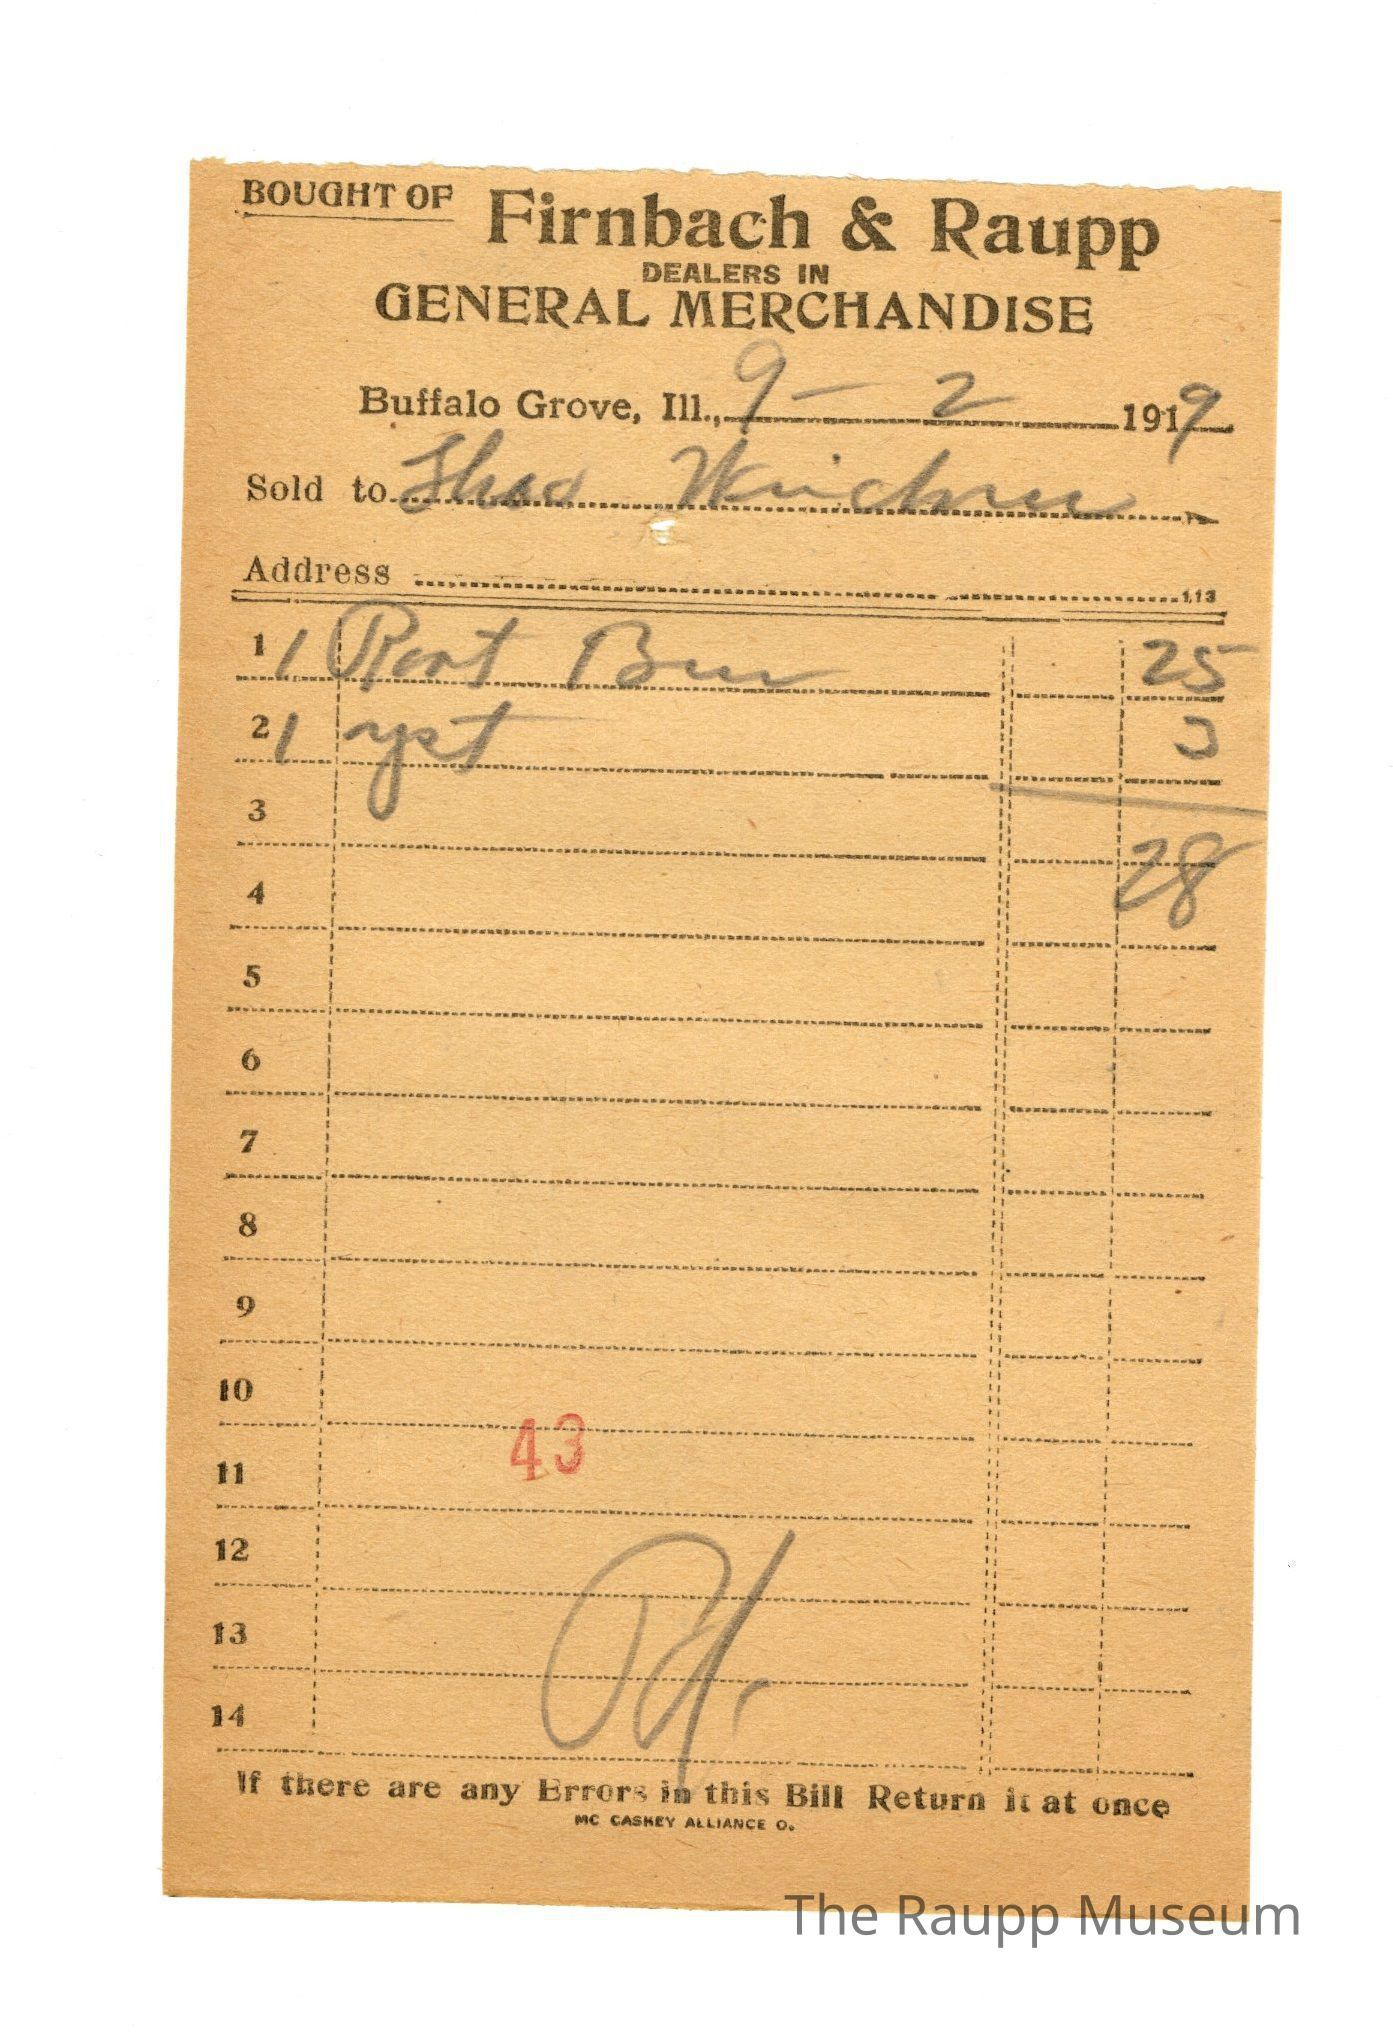 BOUGHT OF Firnbach & Raupp
DEALERS IN
GENERAL MERCHANDISE
Buffalo Grove, Ill., 9 - 2 1919
Sold to Theo
Address 113
1 1 Root Beer 25
2 1 yst 3
3
28
4
5
6
7
8
9
10
43
11
12
13
14
If there are any Errors in this Bill Return it at once
MC CASKEY ALLIANCE O.
The Raupp Museum